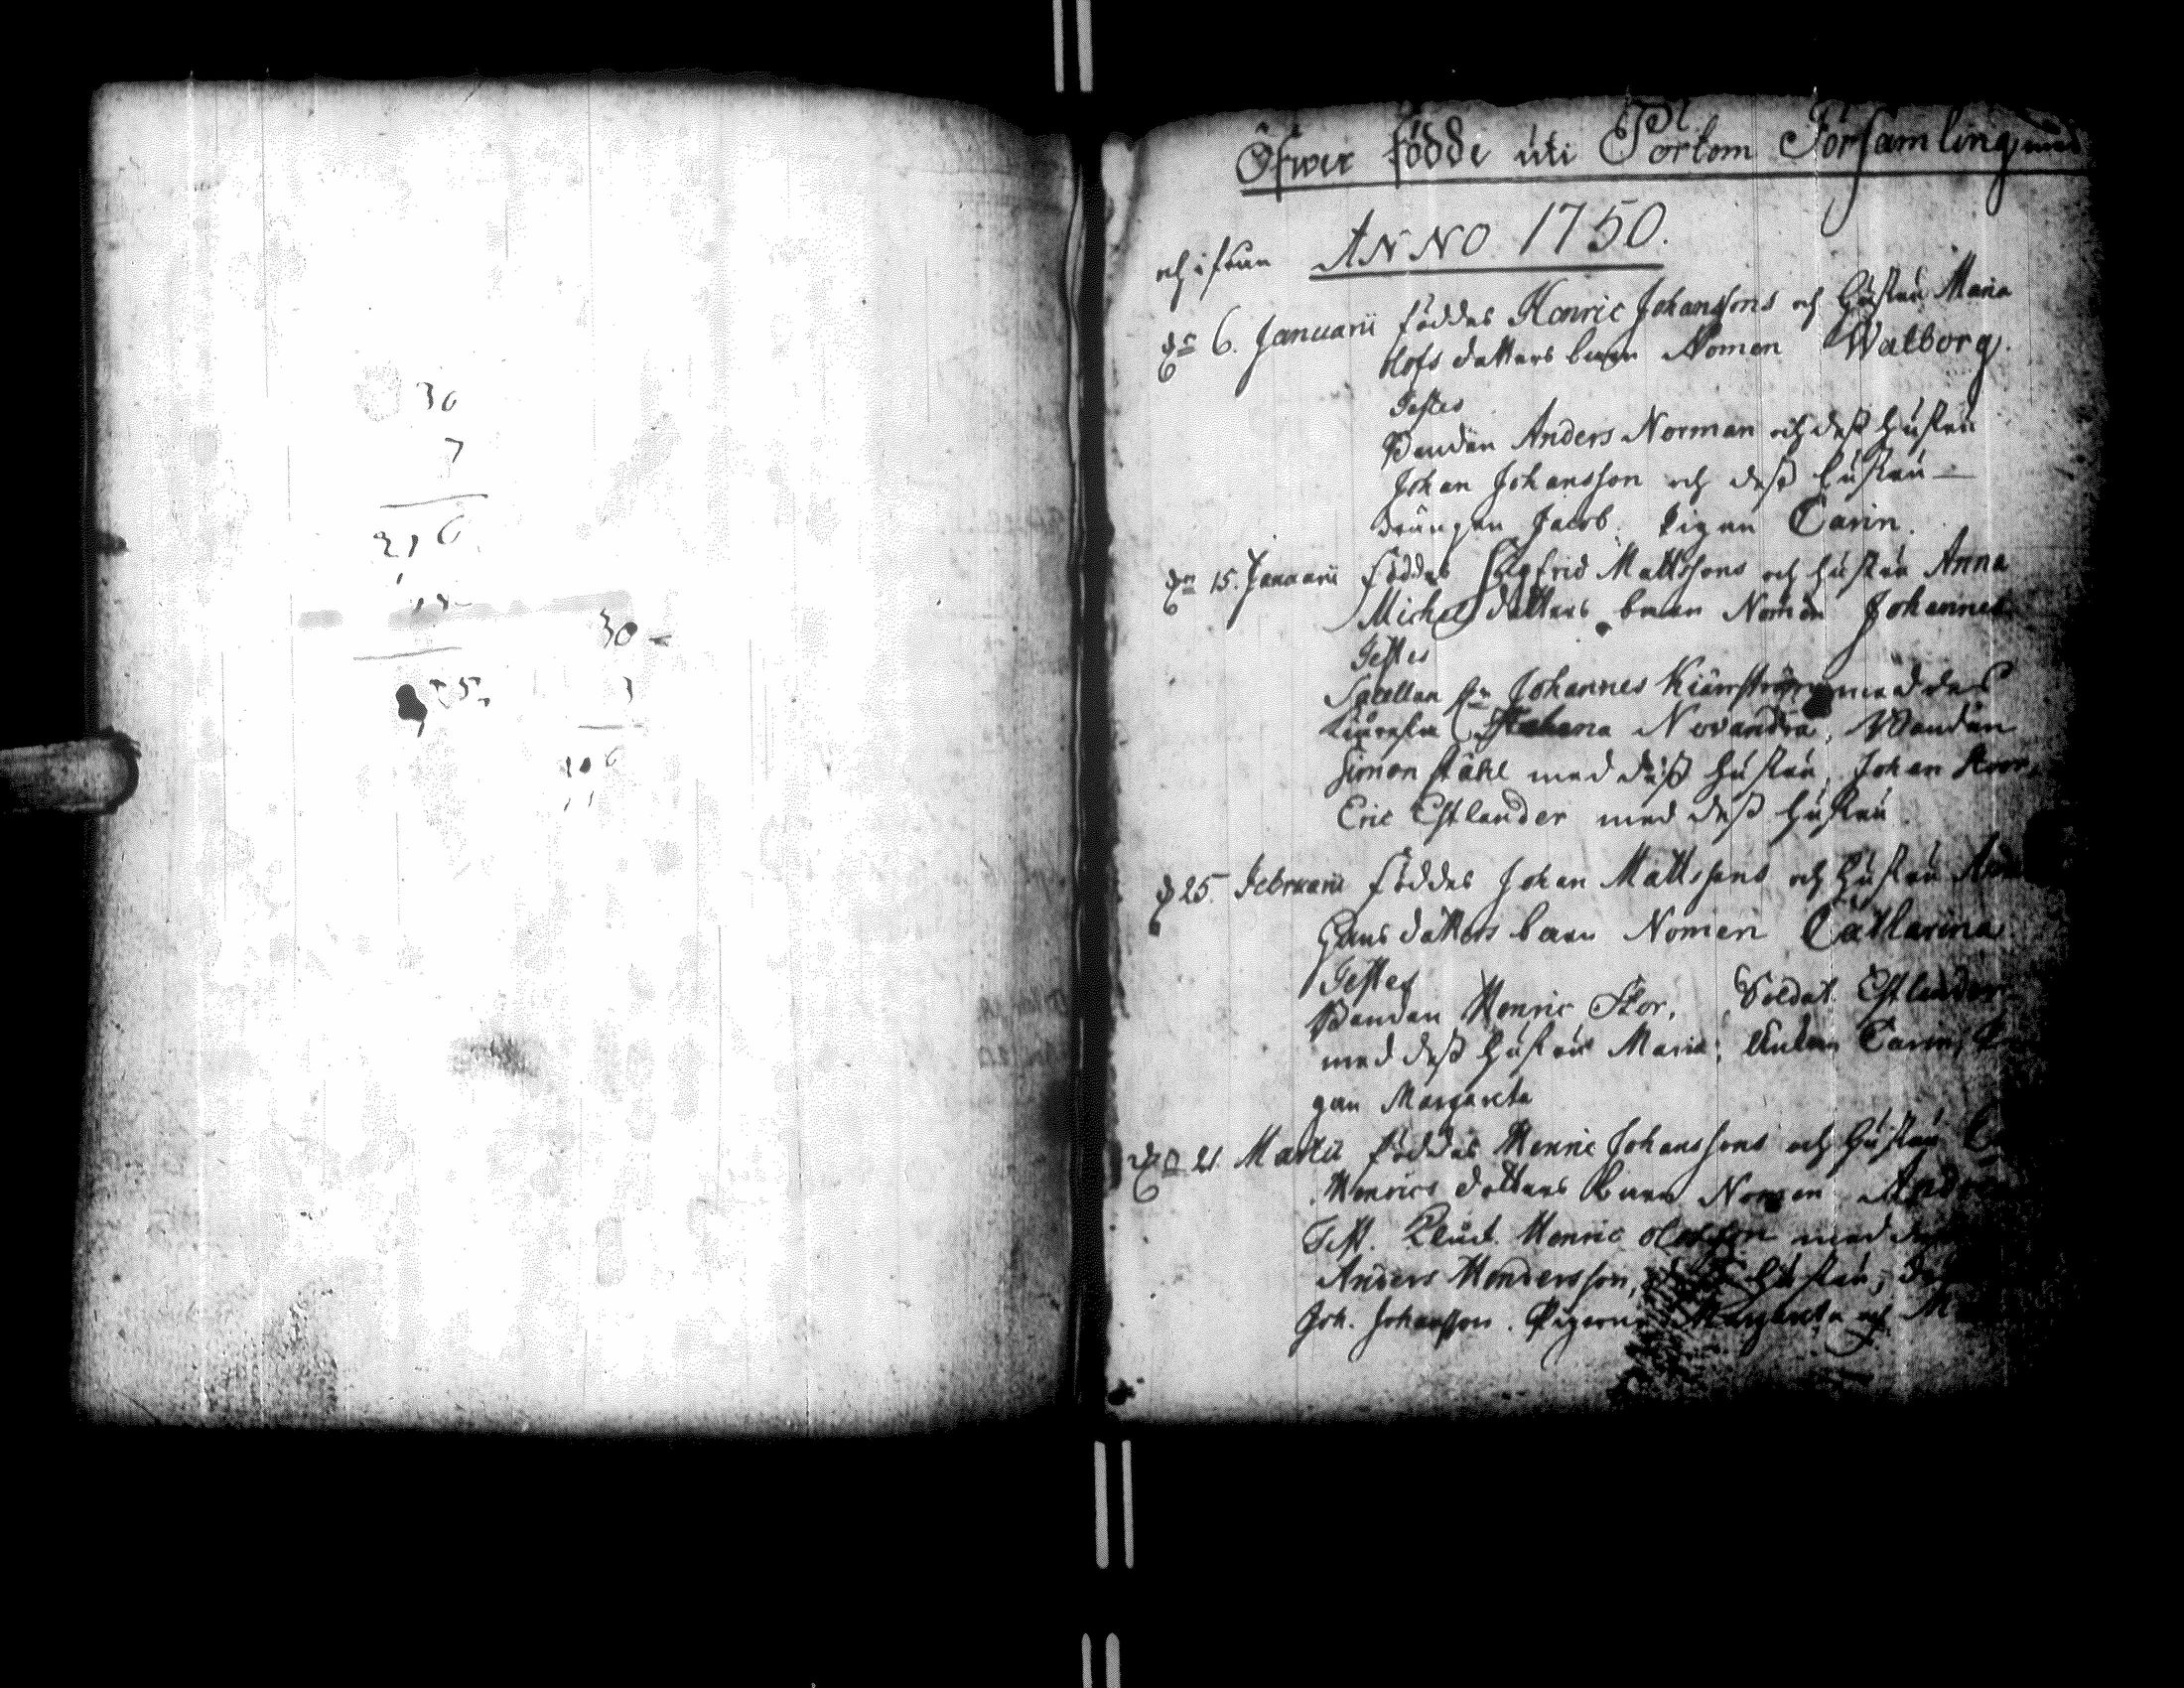 30
7
210
30
3
Öfwer födde uti Pörtom Församling med
och ifrån ANNO 1750.
dn 6. Januarii föddes Henric Johanssons och hustru Maria
Olofs dotters barn Nomen Walborg.
Testes
Bonden Anders Norman och dess hustru
Johan Johansson och dess hustru
drängen Jacob. Pigan Carin.
dn 15. Januarii föddes Sigfrid Mattssons och hustru Anna
Michels dotters barn Nomen Johannes
Testes
Sacellan Hr Johannes med dess
Novandra, Bonden
Simon Ståhl med dess hustru, Johan Stoor,
Eric Estlander med dess hustru.
d 25. Februarii föddes Johan Mattssons och hustru
Hans dotters barn Nomen Catharina
Testes
Bonden Henric Stor, Soldat Estlander
med dess hustru Maria; Enkan Carin,
gan Margareta
dn 21. Martii föddes Henric Johanssons och hustru
Henrics dotters barn Nomen
Test. Henric Olofsson med
Anders Hendersson, hustru,
Joh. Johansson. Pigorne Margareta och